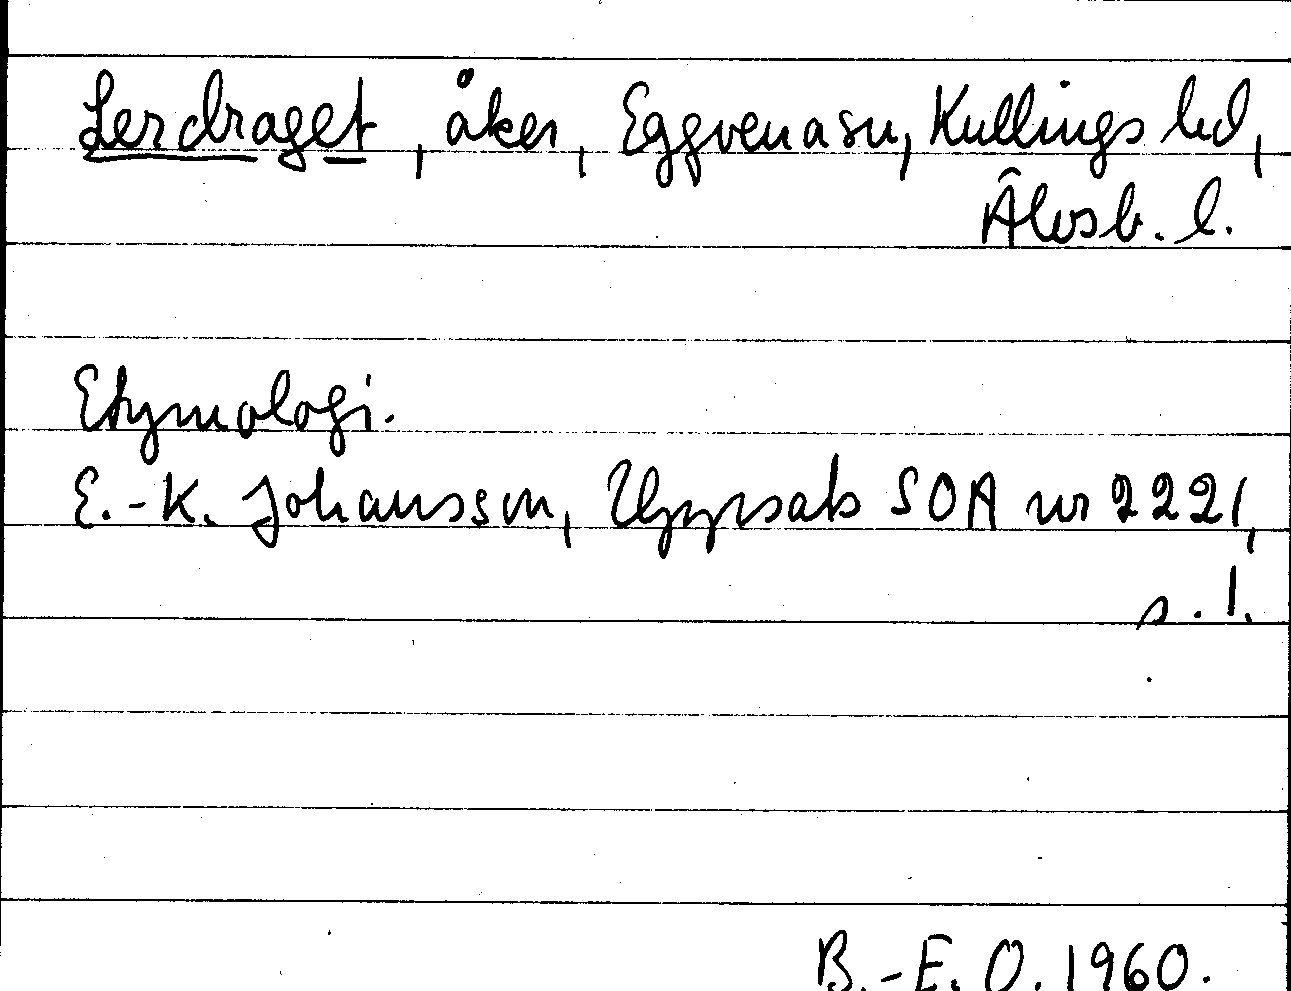 Lerdraget, åker, Eggvena sn, Kullings hd,
Älvsb. l.
Etymologi.
E.-K. Johansson, Uppsats SOA nr 2221,
s. 1.
B.-E. O. 1960.